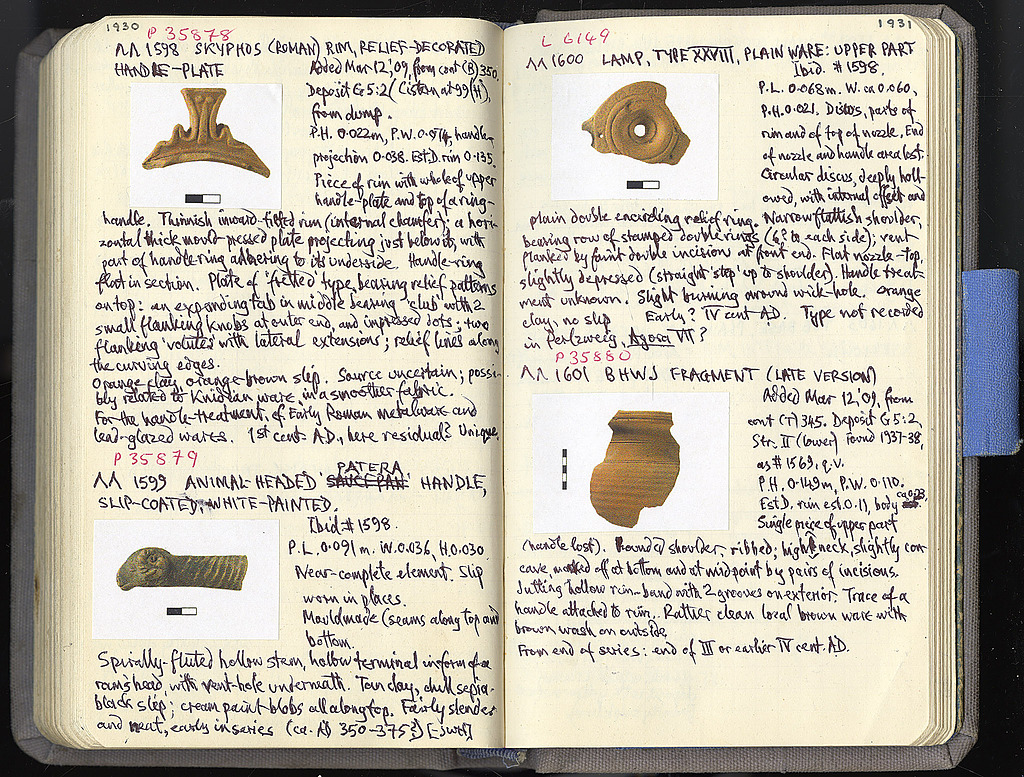 1930
P 35878
ΛΛ 1598 SKYPHOS (ROMAN) RIM, RELIEF-DECORATED
HANDLE-PLATE
Added Mar 12,'09, from cont (B) 350,
Deposit G 5:2 (Cistern at 99/H),
from dump.
P.H. 0.022m, P.W. 0.074, handle-
projection 0.038. Est.D. rim 0.135.
Piece of rim with whole of upper
handle-plate and top of a ring-
handle. Thinnish inward-tilted rim (internal chamfer); a hori-
zontal thick mould-pressed plate projecting just below it, with
part of handle-ring adhering to its underside. Handle-ring
flat in section. Plate of 'fretted' type, bearing relief patterns
on top: an expanding tab in middle bearing 'club' with 2
small flanking knobs at outer end, and impressed dots; two
flanking 'volutes' with lateral extensions; relief lines along
the curving edges.
Orange clay, orange-brown slip. Source uncertain; possi-
bly related to Knidian ware, in a smoother fabric.
For the handle-treatment, cf. Early Roman metalware and
lead-glazed wares. 1st cent. A.D., here residual? Unique.
P 35879
ΛΛ 1599 ANIMAL-HEADED SAUCEPAN PATERA HANDLE,
SLIP-COATED: WHITE-PAINTED.
Ibid # 1598.
P.L. 0.091m. W. 0.036, H. 0.030.
Near-complete element. Slip
worn in places.
Mouldmade (seams along top and
bottom.
Spirally-fluted hollow stem, hollow terminal in form of a
ram's head, with vent-hole underneath. Tan clay, dull sepia-
black slip; cream paint blobs all along top. Fairly slender
and neat, early in series (ca. AD 350-375?)
1931
L 6149
ΛΛ 1600 LAMP, TYPE XXVIII, PLAIN WARE: UPPER PART
Ibid. # 1598.
P.L. 0.068m. W. ca 0.060,
P.H. 0.021. Discus, parts of
rim and of top of nozzle. End
of nozzle and handle area lost.
Circular discus, deeply holl-
owed, with internal offset and
plain double encircling relief ring. Narrow flattish shoulder,
bearing row of stamped double rings (6? to each side); vent
flanked by faint double incision at front end. Flat nozzle-top,
slightly depressed (straight 'step' up to shoulder). Handle treat-
ment unknown. Slight burning around wick-hole. Orange
clay, no slip Early? IV cent A.D. Type not recorded
in Perlzweig, Agora VII?
P 35880
ΛΛ 1601 BHWJ FRAGMENT (LATE VERSION)
Added Mar 12,'09, from
cont (T) 345. Deposit G 5:2,
Str. II (lower) found 1937-38,
as # 1569, q.v.
P.H. 0.149m, P.W. 0.110.
Est D. rim est. 0.11, body ca 0.23,
Single piece of upper part
(handle lost). Rounded shoulder, ribbed; high neck, slightly con-
cave, marked off at bottom and at midpoint by pairs of incisions.
Jutting hollow rim-band with 2 grooves on exterior. Trace of a
handle attached to rim. Rather clean local brown ware with
brown wash on outside.
From end of series: end of III or earlier IV cent. AD.